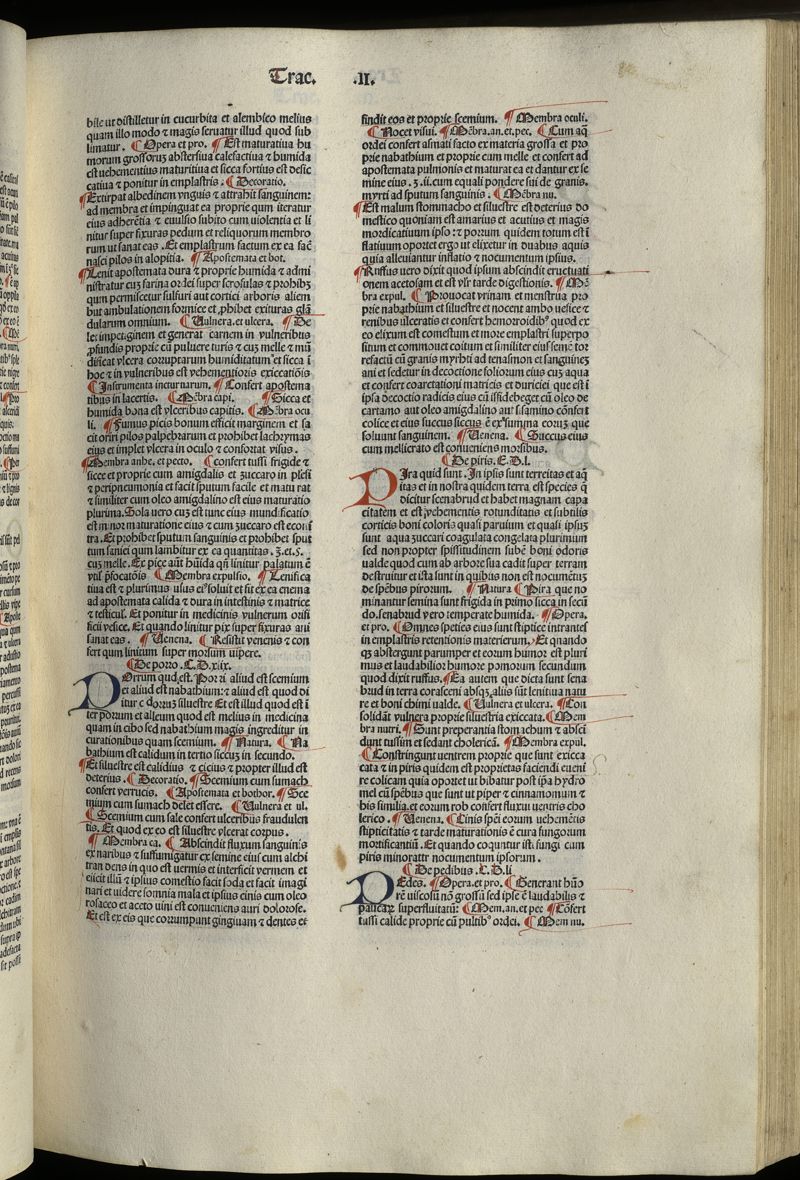 Trac. .II.
bile ut distilletur in cucurbita et alembico melius
quam illo modo ⁊ magis seruatur illud quod sub
limatur. ¶ Opera et pro. ¶ Est maturatiua hu
morum grossorum abstersiua calefactiua ⁊ humida
est uehementius maturitiua et sicca fortius est desic
catiua ⁊ ponitur in emplastris. ¶ Decoratio.
¶ Extirpat albedinem unguis ⁊ attrahit sanguinem:
ad membra et impinguat ea proprie qum iteratur
eius adherētia ⁊ euulsio subito cum uiolentia et li
nitur super fixuras pedum et reliquorum membro
rum ut sanat eas. Et emplastrum factum ex ea facē
nasci pilos in alopitia. ¶ Apostemata et bot.
¶ Lenit apostemata dura ⁊ proprie humida ⁊ admi
nistratur cuʒ farina ordei super scrofulas ⁊ prohibʒ
qum permiscetur sulfuri aut cortici arboris aliem
but ambulationem formice et ꝓhibet exituras glā
dularum omnium. ¶ Uulnera.et ulcera. ¶ De
let impetiginem et generat carnem in vulneribus
ꝓfundis proprie cū puluere turis ⁊ cuʒ melle ⁊ mū
dificat vlcera corruptarum humiditatum et sicca ī
hoc ⁊ in vulneribus est vehementioris exiccatiōis
¶ Instrumenta iuncturnarum. ¶ Confert apostema
tibus in lacertis. ¶ Mēbra capi. ¶ Sicca et
humida bona est vlceribus capitis. ¶ Mēbra ocu
li. ¶ Fumus picis bonum efficit marginem et fa
cit oriri pilos palpebrarum et prohibet lachrymas
eius et implet vlcera in oculo ⁊ confortat visus.
¶ Membra anhe. et pecto. ¶ confert tussi frigide ⁊
sicce et proprie cum amigdalis et zuccaro in plesi
⁊ peripneumonia et facit sputum facile et matu rat
⁊ similiter cum oleo amigdalino est eius maturatio
plurima. Sola uero cuʒ est tunc eius mundificatio
est minor maturatione eius ⁊ cum zuccaro est econī
tra. Et prohibet sputum sanguinis et prohibet sput
tum saniei qum lambitur ex ea quantitas .ʒ.et.ſ.
cuʒ melle. Ex pice aūt hūida qn̄ linitur palatum ē
vtil pfocatōis ¶ Membra expulsio. ¶ Lenifica
tiua est ⁊ plurimus usus ei⁹ soluit et fit ex ea enema
ad apostemata calida ⁊ dura in intestinis ⁊ matrice
⁊ testicul. Et ponitur in medicinis vulnerum orifi
ticij vesice. Et quando linitur pix super fixuras ani
sanat eas. ¶ Uenena. ¶ Resistit venenis ⁊ con
fert qum linitum super morsum uipere.
¶ De porro .C.D.xlix.
POrrum quid est. Porri aliud est scemium
et aliud est nabathium: ⁊ aliud est quod di
itur c doruʒ siluestre Et est illud quod est ī
ter porrum et alleum quod est melius in medicina
quam in cibo sed nabathium magis ingreditur in
curationibus quam scemium. ¶ Natura. ¶ Na
bathium est calidum in tertio siccuʒ in secundo.
¶ Et siluestre est calidius ⁊ ciccius ⁊ propter illud est
deterius. ¶ Decoratio. ¶ Scemium cum sumach
confert verrucis. ¶ Apostemata et bothor. ¶ Sce
mium cum sumach delet essere. ¶ Uulnera et ul.
¶ Scemium cum sale confert ulceribus fraudulen
tis. Et quod ex eo est siluestre vlcerat corpus.
¶ Membra ca. ¶ Abscindit fluxum sanguinis
ex naribus ⁊ suffumigatur ex semine eius cum alchi
tran dens in quo est vermis et interficit vermem et
eiicit illū ⁊ ipsius comestio facit soda et facit imagi
nari et uidere somnia mala et ipsius einis cum oleo
rosaceo et aceto uini est conueniens auri dolorose.
Et est ex eis que corrumpunt gingiuam ⁊ dentes et
findit eos et proprie scemium. ¶ Membra oculi.
¶ Nocet visui. ¶ Mēbra.an.et.pec. ¶ Cum aq̄
ordei confert asmati facto ex materia grossa et pro
prie nabathium et proprie cum melle et confert ad
apostemata pulmonis et maturat ea et dantur ex se
mine eius .ʒ.ii.cum equali pondere sui de granis.
myrti ad sputum sanguinis. ¶ Mēbra nu.
¶ Est malum stommacho et siluestre est deterius do
mestico quoniam est amarius et acutius et magis
mordicatiuum ipso: ⁊ porrum quidem totum est ī
flatiuum oportet ergo ut elixetur in duabus aquis
quia alleuiantur inflatio ⁊ nocumentum ipsius.
¶ Ruffus uero dixit quod ipsum abscindit eructuati
onem acetosam et est vlr tarde digestionis. ¶ Mē
bra expul. ¶ Prouocat vrinam et menstrua pro
prie nabathium et siluestre et nocent ambo uesice ⁊
renibus ulceratis et confert hemorroidib⁹ quod ex
eo elixum est comestum et more emplastri superpo
situm et commouet coitum et similiter eius semē tor
refactū cū granis myrthi ad tenasmon et sanguineʒ
ani et sedetur in decoctione foliorum eius cuʒ aqua
et confert coaretationi matricis et duriciei que est ī
ipsa decoctio radicis eius cū isfidebeget cū oleo de
cartamo aut oleo amigdalino aut sisamino cōnfert
colice et eius succus siccus ē ex summa eorum que
soluunt sanguinem. ¶ Uenena. ¶ Succus eius
cum mellicrato est conueniens morsibus.
¶ De piris. C.D.l.
PIra quid sunt. In ipsis sunt terreitas et aq̄
itas et in nostra quidem terra est species q̄
dicitur scena brud et habet magnam capa
citatem et est vehementis rotunditatis et subtilis
corticis boni coloris quasi paruium et quasi ipsuʒ
sunt aqua zuccari coagulata congelata plurimum
sed non propter spissitudinem subē boni odoris
ualde quod cum ab arbore sua cadit super terram
destruitur et ista sunt in quibus non est nocumētuʒ
de spēbus pirorum. ¶ Natura ¶ Pira que no
minantur semina sunt frigida in primo sicca in secū
do. senabrud vero temperate humida. ¶ Opera.
et pro. ¶ Omnes speties eius sunt stiptice intrantes
in emplastris retentionis materierum. Et quando
qʒ abstergunt parumper et eorum humor est pluri
mus et laudabilior humore pomorum secundum
quod dixit ruffus. ¶ Ea autem que dicta sunt sena
brud in terra corasceni absqʒ aliis sūt lenitiua natu
re et boni chimi ualde. ¶ Uulnera et ulcera. ¶ Con
solidāt vulnera proprie siluestria exiccata. ¶ Mem
bra nutri. ¶ Sunt preperantia stomachum ⁊ absci
dunt tussim et sedant cholericā. ¶ Membra expul.
¶ Constringunt uentrem proprie que sunt exicca
cata ⁊ in piris quidem est proprietas faciendi eueni
re colicam quia oportet ut bibatur post ipa hydro
mel cū spēbus que sunt ut piper ⁊ cinnamomum ⁊
his similia.et eorum rob confert fluxui uentris cho
lerico. ¶ Uenena. ¶ Cinis spēi eorum uehemētis
stipticitatis ⁊ tarde maturationis ē cura fungorum
mortificantiū. Et quando coquntur isti fungi cum
piris minoratrr nocumentum ipsorum.
¶ De pedibus .C.D.li
PEdes. ¶ Opera.et pro. ¶ Generant hūo
rē uiscosū nō grossū sed ipse ē laudabilis ⁊
paucaꝝ superfluitatū: ¶ Mem.an.et pec ¶ Cōfert
tussi calide proprie cū pultib⁹ ordei. ¶ Mem nu.